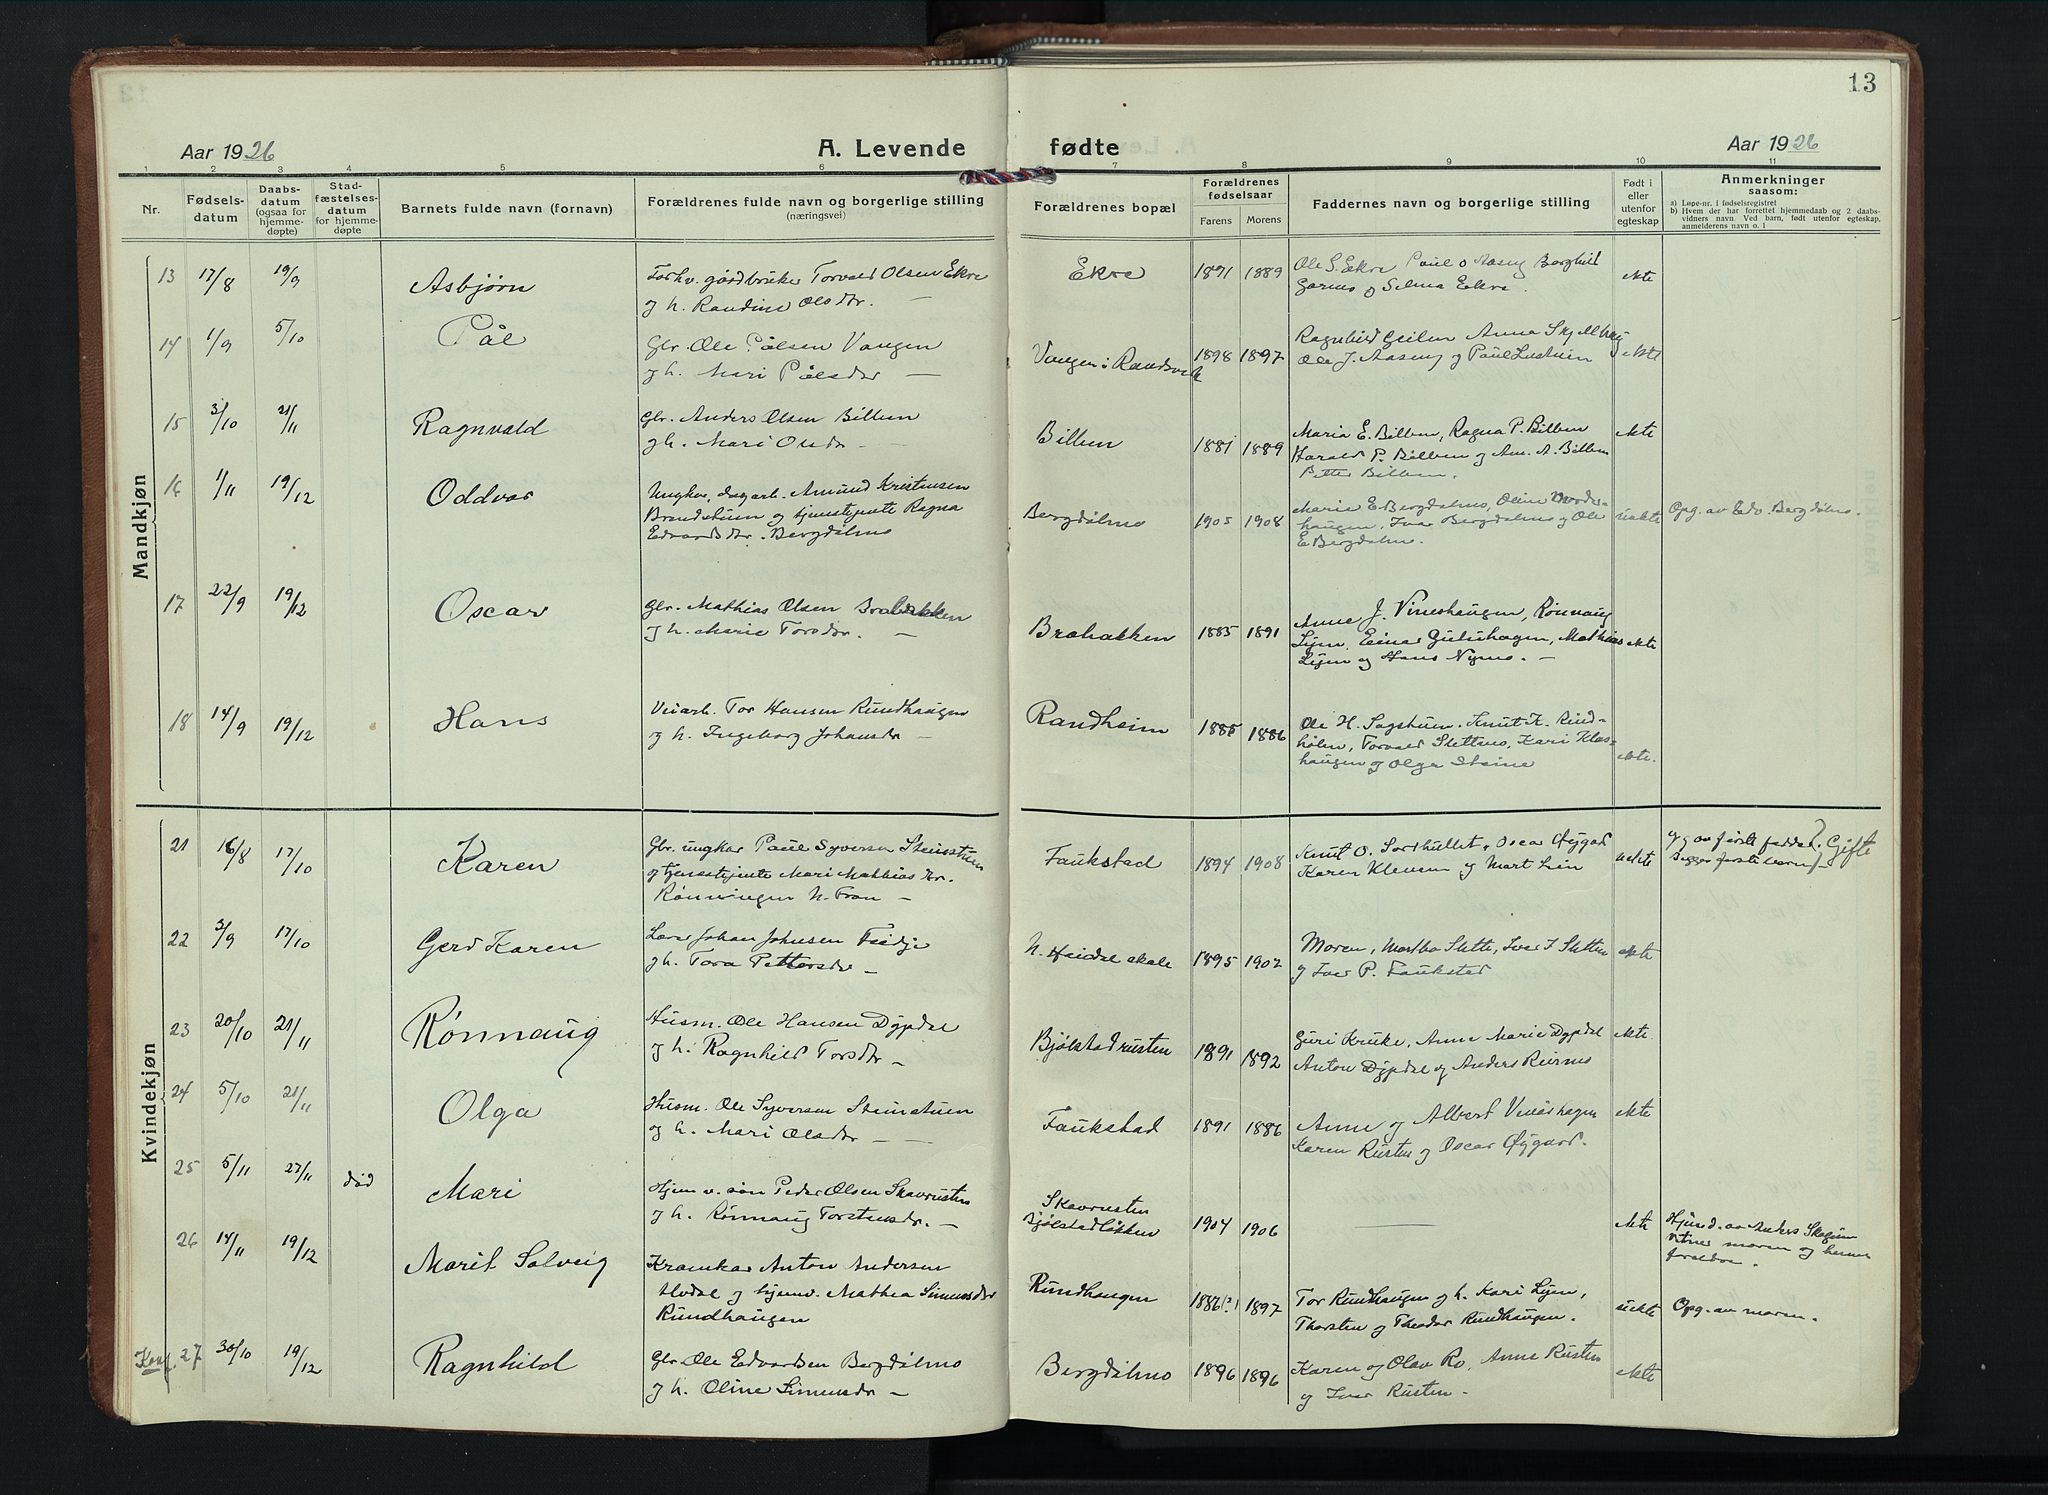 13
Aar 1926
A. Levende
fødte
Aar 1926
1 2 3 4 5 6 7 8 9 10 11
Nr.
Fødsels-
datum
Daabs-
datum
(ogsaa for
hjemme-
døpte)
Stad-
fæstelses-
datum
for hjemme-
døpte
Barnets fulde navn (fornavn)
Forældrenes fulde navn og borgerlige stilling
(næringsvei)
Forældrenes bopæl
Forældrenes
fødselsaar
Farens Morens
Faddernes navn og borgerlige stilling
Født i
eller
utenfor
egteskap
Anmerkninger
saasom:
a) Løpe-nr. i fødselsregistret
b) Hvem der har forrettet hjemmedaab og 2 daabs-
vidners navn. Ved barn, født utenfor egteskap,
anmelderens navn o. l
Mandkjøn
13 17/8 19/9 Asbjørn
Forhv. gårdbruker Torvald Olsen Ekre
og h. Randine Olsdtr. —
Ekre 1891 1889
Ole S. Ekre Paul O Aaseng Borghild
Garmo og Selma Ekre.
ekte
14 1/9 5/10 Pål
Gbr. Ole Pålsen Vangen
og h. Mari Pålsdtr
Vangen i Randsverk 1898 1897
Ragnhild Anna Skjellhaug
Ole J. Aaseng og Paul
ekte
15 3/10 21/11 Ragnvald
Gbr. Anders Olsen Bilben
og h. Mari Olsdtr —
Bilben 1881 1889
Maria E. Bilben, Ragna P. Bilben
Harald P. Bilben og Am. A. Bilben
Bilben.
ekte
16 1/11 19/12 Oddvar
Ungkar, dagarb. Amund Kristensen
Brandstuen og tjenestejente Ragna
Edvardsdtr. Bergdølmo
Bergdølmo 1905 1908
Marie E. Bergdølmo, Oline
haugen, Ivar Bergdølmo og Ole
E Bergdølmo.
uekte
Opg. av Edv. Bergdølmo.
17 22/9 19/12 Oscar
Gbr. Mathias Olsen Brabakken
og h. Marie Torsdtr. —
Brabakken 1885 1891
Anne J. Vineshaugen, Rønnaug
Lijen, Einar Gulushagen, Mathias
Lijen og Hans Nymo. —
ekte
18 14/9 19/12 Hans
Veiarb. Tor Hansen Rundhaugen
og h. Ingeborg Johansdtr —
Randheim 1885 1886
Ole H. Sagstuen. Knut K. Rind-
hølen, Torvald Slettmo, Kari Klæs-
haugen og Olga Steine
ekte.
Kvindekjøn
21 16/8 17/10 Karen
Gbr. ungkar Paul Syversen Steinstuen
og tjenestejente Mari Mathiasdtr.
Rønningen N. Fron —
Faukstad 1894 1908
Knut O. Sordhullet, Oscar Øygard
Karen Klevsen og Marit Lien
uekte
Gifte
22 3/9 17/10 Gerd Karen
Lærer Johan Johnsen Tiedje
og h. Tora Pettersdtr —
N. Heidal skole 1895 1902
Moren, Martha Slette, Iver I Sletten
og Iver P. Faukstad
ekte
23 20/10 21/11 Rønnaug
Husm. Ole Hansen Dypdal
og h. Ragnhild Torsdtr —
Bjølstadrusten 1891 1892
Guri Kruke, Anne Marie Dypdal
Anton Dypdal og Anders Ruimo
ekte.
24 5/10 21/11 Olga
Husm. Ole Syversen Steinstuen
og h. Mari Olsdtr —
Faukstad 1891 1886
Anne og Albert Vineshagen
Karen Rusten og Oscar Øygard.
ekte
25 5/11 27/11 død Mari
Hjemv. søn Peder Olsen Skavrusten
og h. Rønnaug Torstensdtr. —
Skavrusten
Bjølstadløkken 1904 1906
—
ekte
Hjmd. av Anders Skogum
Vitner moren og hennes
foreldre.
26 14/11 19/12 Marit Solveig
Kramkar Anton Andersen
Hodal og hjemv. Mathea Simensdtr
Rundhaugen
Rundhaugen 1886(?) 1897
Tor Rundhaugen og h. Kari Lijen,
Thorsten og Theodor Rundhaugen.
uekte
Opg. av moren.
Konf. 27 30/10 19/12 Ragnhild
Gbr. Ole Edvardsen Bergdølmo
og h. Oline Simensdtr —
Bergdølmo 1896 1896
Karen og Olav Ro, Anne Rusten
og Iver Rusten —
ekte